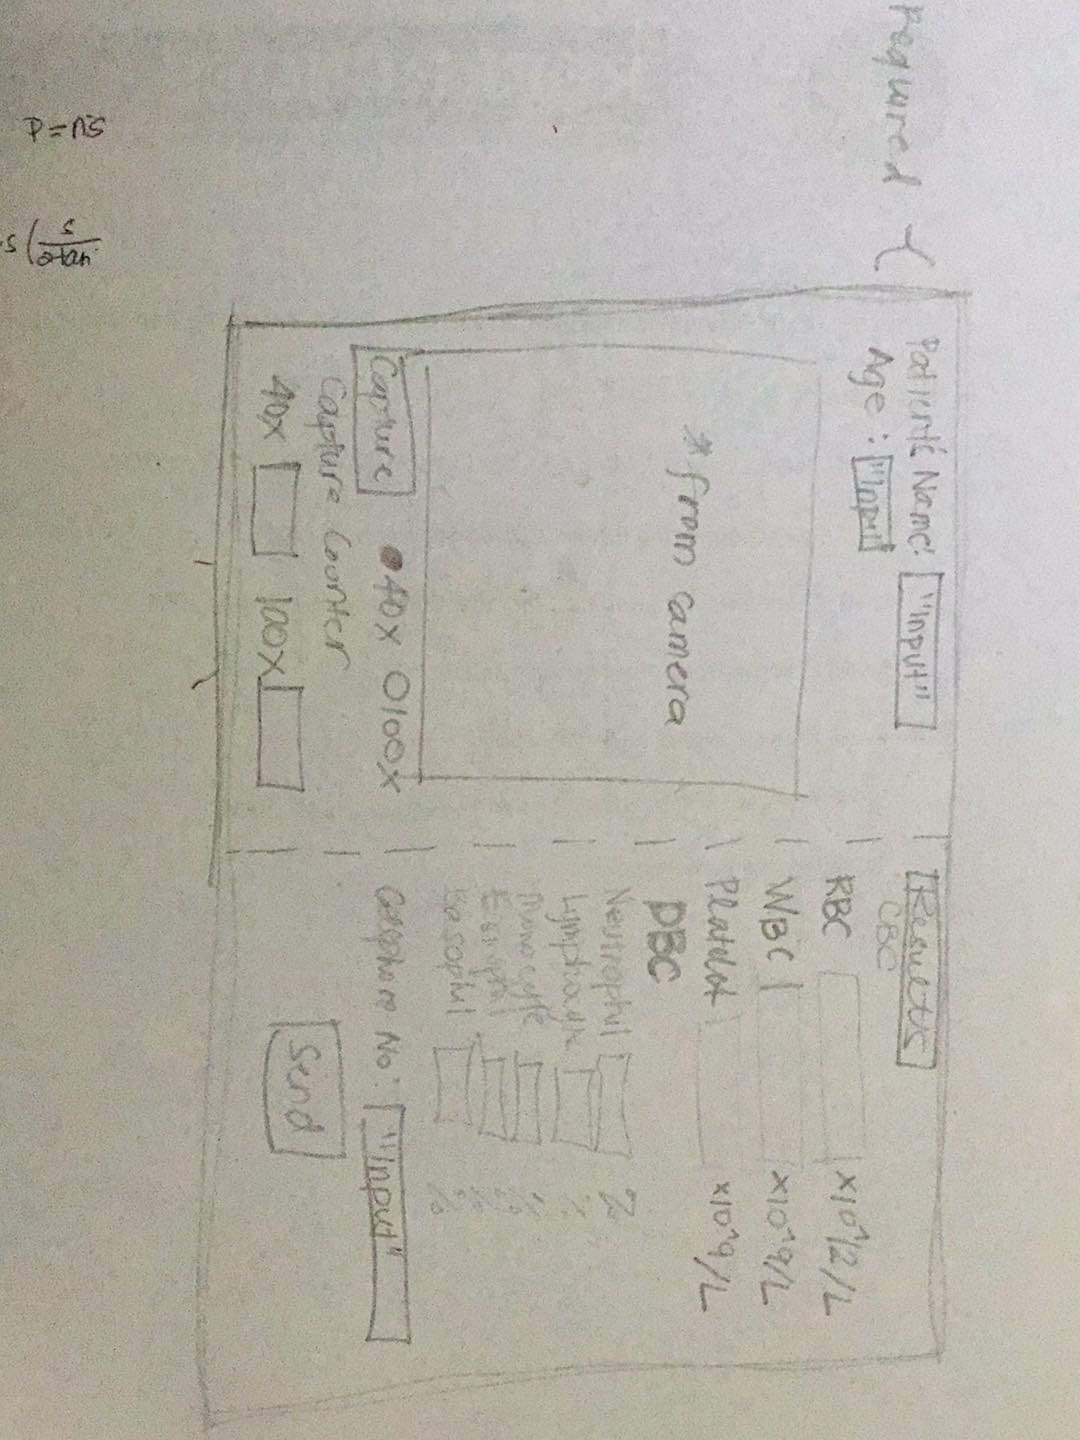 Required {
Patient's Name: "Input"
Age : "Input
* from camera
Capture 40x 100x
Capture Counter
40x 100x
Results
CBC
RBC x10^12/L
WBC x10^9/L
Platelet x10^9/L
DBC
Neutrophil %
Lymphocyte %
Monocyte %
%
Basophil %
Cellphone No: "Input"
Send